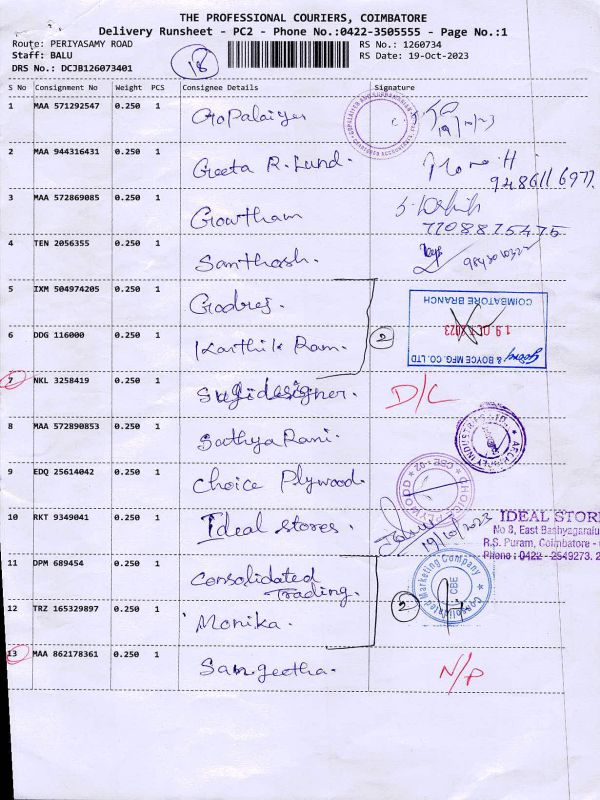 THE PROFESSIONAL COURIERS, COIMBATORE
Delivery Runsheet - PC2 - Phone No.:0422-3505555 - Page No.:1
Route: PERIYASAMY ROAD
RS No.: 1260734
Staff: BALU
18
RS Date: 19-Oct-2023
DRS No.: DCJB126073401
S No Consignment No Weight PCS Consignee Details Signature
1 MAA 571292547 0.250 1 Gopalaiyer
19/10/23
2 MAA 944316431 0.250 1 Geeta R. Lund.
9486116977
3 MAA 572869085 0.250 1 Gowtham
7708875475
4 TEN 2056355 0.250 1 Santhosh.
5 IXM 504974205 0.250 1 Godrej.
COIMBATORE BRANCH
19 OCT 2023
& BOYCE MFG. CO. LTD
6 DDG 116000 0.250 1 Karthik Ram.
2
7 NKL 3258419 0.250 1 Sujidesigner.
D/C
8 MAA 572890853 0.250 1 Sathya Rani.
9 EDQ 25614042 0.250 1 Choice Plywood.
CHOICE PLYWOOD
10 RKT 9349041 0.250 1 Ideal Stores.
19/10/2023
IDEAL STOR
No 8, East Bashyagaralu
R.S. Puram, Coimbatore -
Phone : 0422 - 2549273. 2
11 DPM 689454 0.250 1 Consolidated
Trading.
Consolidated Marketing Company
CBE
12 TRZ 165329897 0.250 1 Monika.
2
13 MAA 862178361 0.250 1 Sangeetha.
N/P